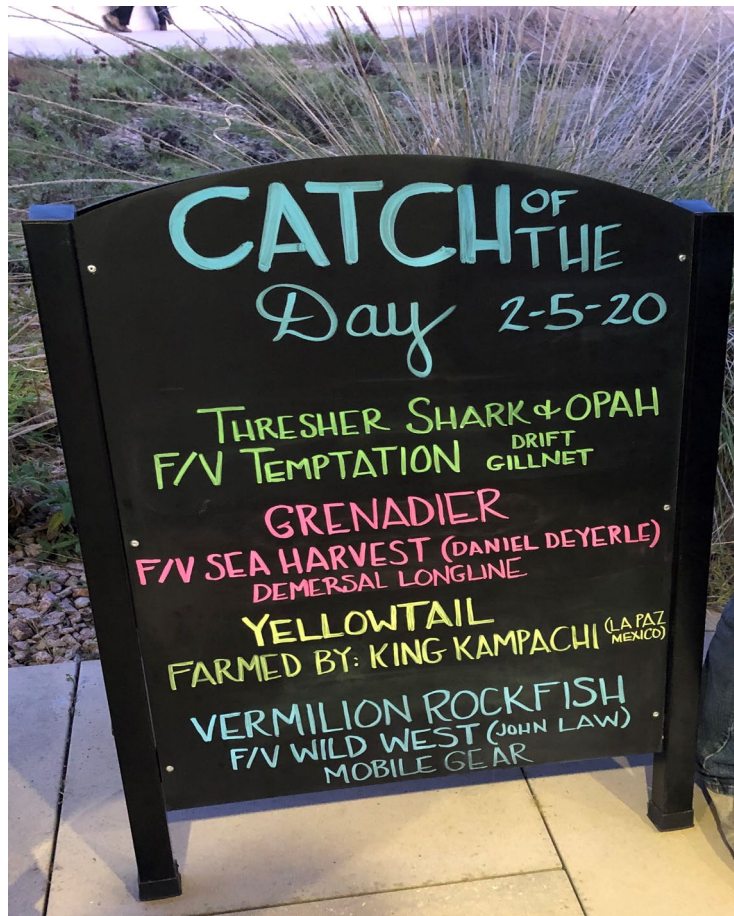 CATCH OF THE
Day 2-5-20
THRESHER SHARK & OPAH
F/V TEMPTATION DRIFT GILLNET
GRENADIER
F/V SEA HARVEST (DANIEL DEYERLE)
DEMERSAL LONGLINE
YELLOWTAIL
FARMED BY: KING KAMPACHI (LA PAZ MEXICO)
VERMILION ROCKFISH
F/V WILD WEST (JOHN LAW)
MOBILE GEAR